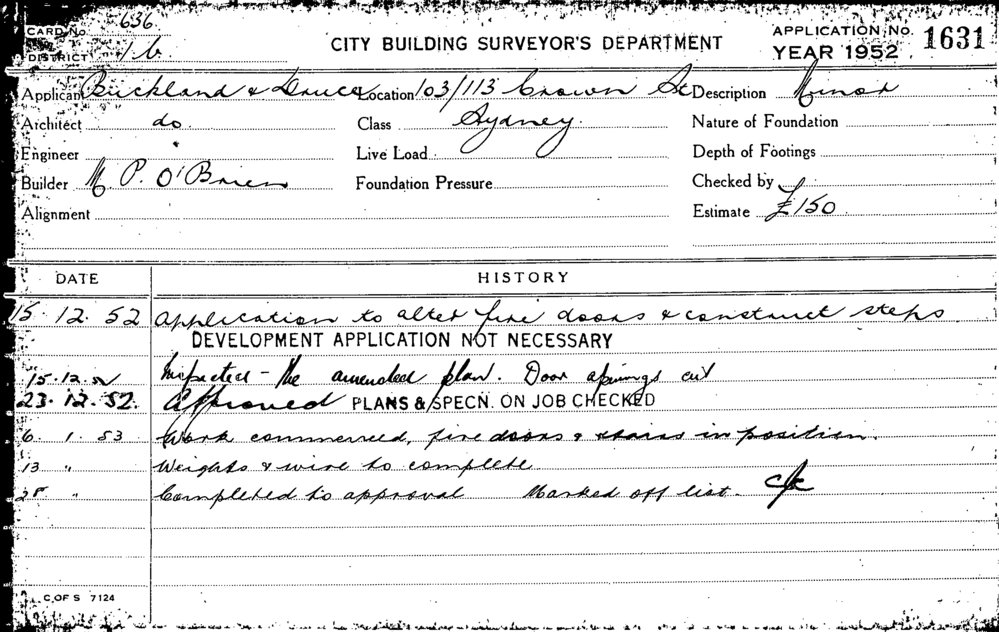 CARD No. 636
DISTRICT 1 b
CITY BUILDING SURVEYOR'S DEPARTMENT
APPLICATION No. 1631
YEAR 1952
Applicant Buckland & Druce Location 103/113 Crown St Description Minor
Architect do. Class Sydney. Nature of Foundation
Engineer Live Load Depth of Footings
Builder M. P. O'Brien Foundation Pressure Checked by
Alignment Estimate £150
DATE HISTORY
15. 12. 52 Application to alter fire doors & construct steps.
DEVELOPMENT APPLICATION NOT NECESSARY
15.12. Inspected - the amended plan. Door openings cut
23. 12. 52. Approved PLANS & SPECN. ON JOB CHECKED
6 1. 53 Work commenced, fire doors & stairs in position.
13 " Weights & wire to complete
28 " Completed to approval Marked off list.
C. OF S 7124